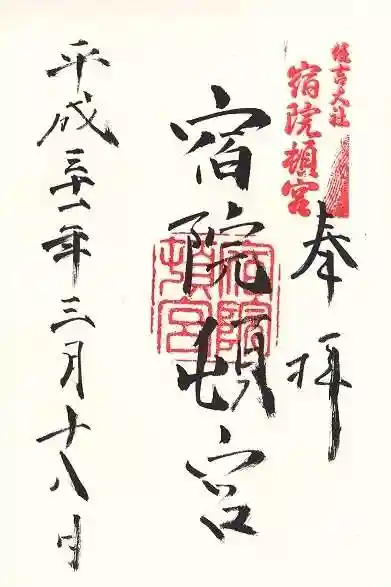 住吉大社
宿院頓宮
奉拝
宿院頓宮
宿院
頓宮
平成三十一年三月十八日